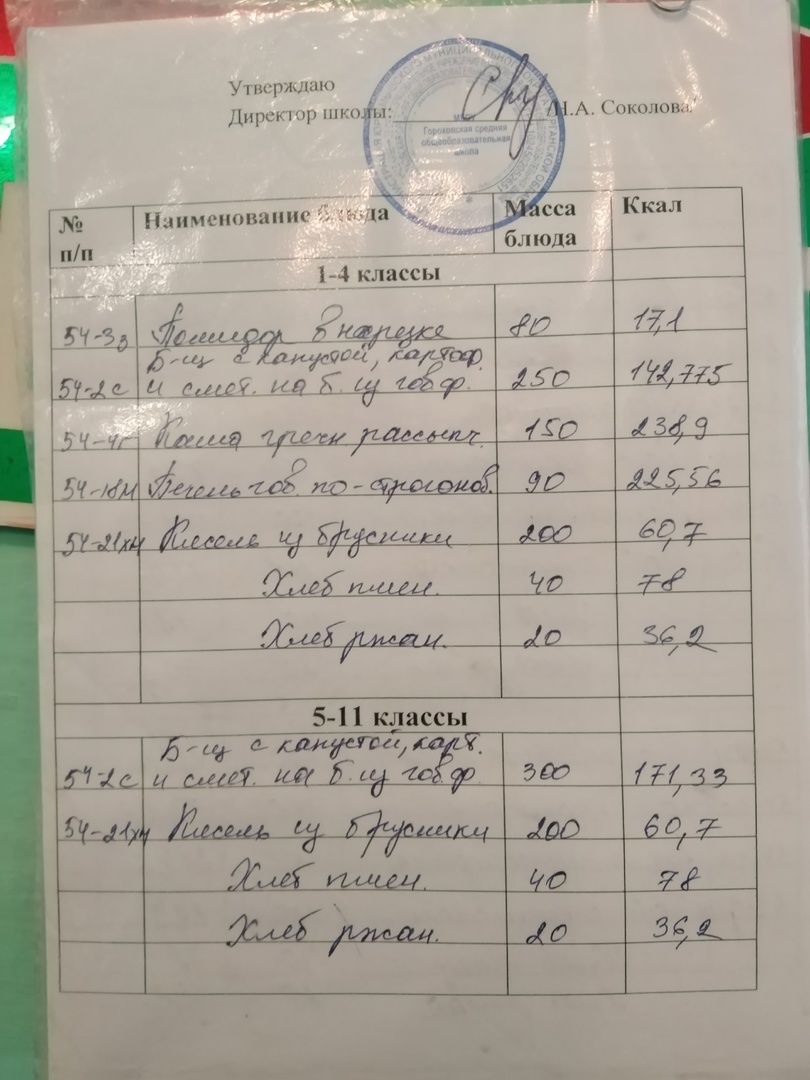 Утверждаю
Директор школы: /Н.А. Соколова/
Гороховская средняя
общеобразовательная
школа
№ п/п Наименование блюда Масса блюда Ккал
1-4 классы
54-3з Помидор в нарезке 80 17,1
Б-щ с капустой, картоф.
54-2с и смет. на б. из говф. 250 142,775
54-4г Каша гречн рассыпч. 150 238,9
54-18м Печень гов. по-строгонов. 90 225,56
54-21хн Кисель из брусники 200 60,7
Хлеб пшен. 40 78
Хлеб ржан. 20 36,2
5-11 классы
Б-щ с капустой, карт.
54-2с и смет. на б. из гов.ф 300 171,33
54-21хн Кисель из брусники 200 60,7
Хлеб пшен. 40 78
Хлеб ржан. 20 36,2